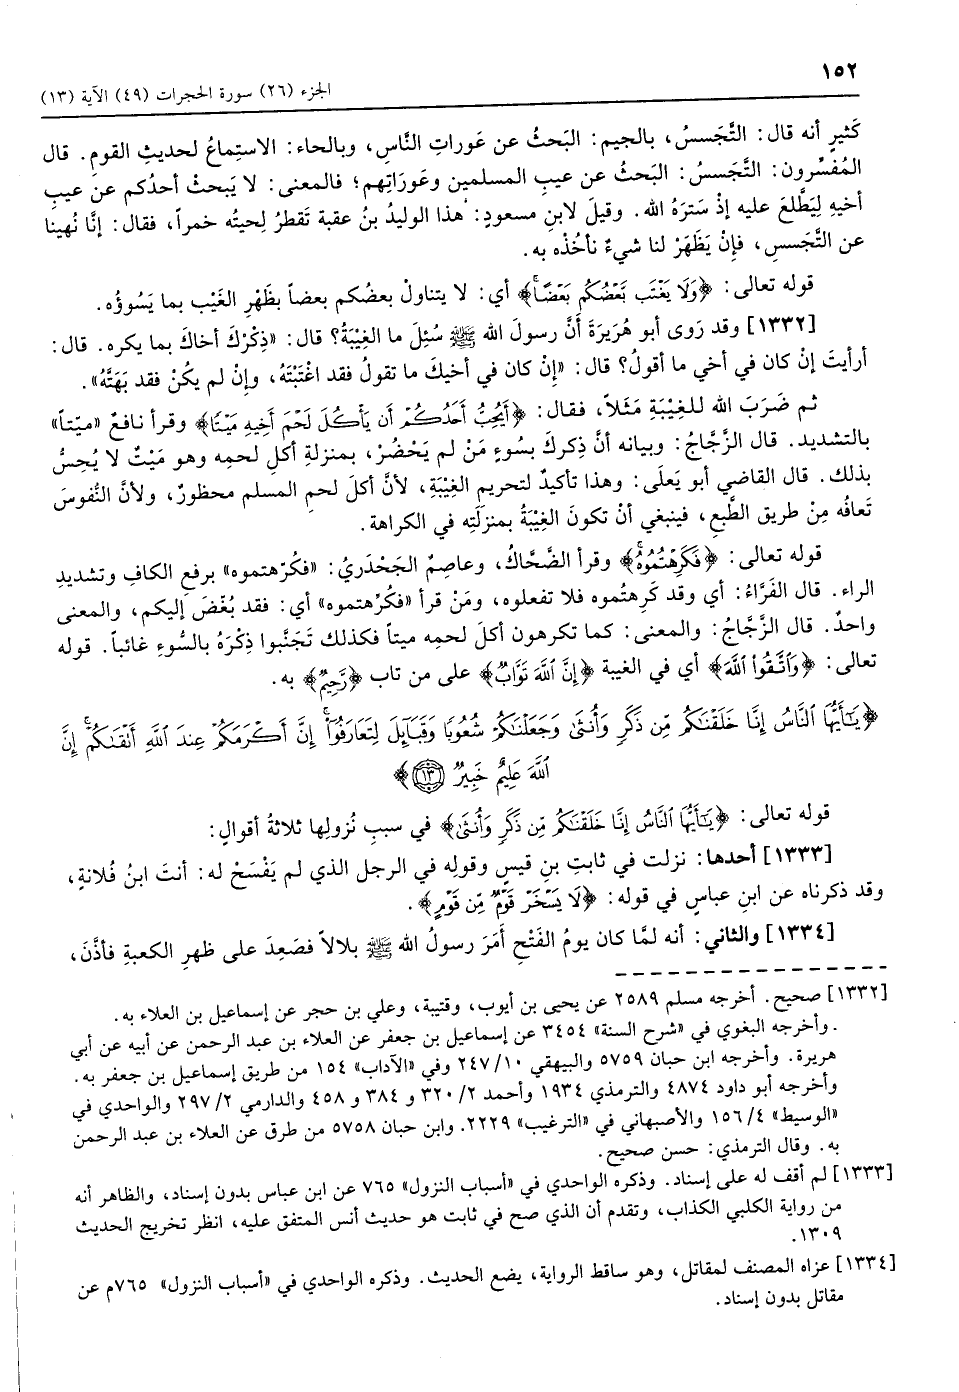 ١٥٢
الجزء (٢٦) سورة الحجرات (٤٩) الآية (١٣)
كَثيرِ أنه قال: التَّجَسسُ، بالجيم: البَحثُ عن عَوراتِ النَّاسِ، وبالحاء: الاستِماعُ لحديثِ القومِ. قال
المُفسِّرون: التَّجَسسُ: البَحثُ عن عيبِ المسلمين وعَورَاتِهم؛ فالمعنى: لا يَبحثْ أحدُكم عن عيبِ
أخيهِ لِيَطَّلعَ عليه إذ سَترَهُ الله. وقيلَ لابنِ مسعودٍ: هذا الوليدُ بنُ عقبة تَقطرُ لِحيتُه خمراً، فقال: إنَّا نُهينا
عن التَّجَسسِ، فإنْ يَظْهَرْ لنا شيءٌ نأخُذْه به.
قوله تعالى: ﴿وَلَا يَغْتَب بَّعْضُكُم بَعْضًاۚ﴾ أي: لا يتناولْ بعضُكم بعضاً بظَهْرِ الغَيْب بما يَسُوؤُه.
[١٣٣٢] وقد رَوى أبو هُرَيرَةَ أنَّ رسولَ الله ﷺ سُئِلَ ما الغِيْبَةُ؟ قال: «ذِكْرُكَ أخاكَ بما يكره. قال:
أرأيتَ إنْ كان في أخي ما أقولُ؟ قال: «إنْ كان في أخيكَ ما تقولُ فقد اغْتَبْتَهُ، وإنْ لم يكُنْ فقد بَهَتَّهُ».
ثم ضَرَبَ الله للغِيْبَةِ مَثَلاً، فقال: ﴿أَيُحِبُّ أَحَدُكُمْ أَن يَأْكُلَ لَحْمَ أَخِيهِ مَيْتًا﴾ وقرأ نافعٌ «ميّتاً»
بالتشديد. قال الزَّجَّاجُ: وبيانه أنَّ ذِكركَ بسُوءٍ مَنْ لم يَحْضُرْ، بمنزلةِ أكلِ لحمِه وهو مَيْتٌ لا يُحِسُّ
بذلك. قال القاضي أبو يَعلَى: وهذا تأكيدٌ لتحريم الغِيْبَةِ، لأنَّ أكلَ لحمِ المسلم محظورٌ، ولأنَّ النُّفوسَ
تَعافُه مِنْ طريق الطَّبعِ، فينبغي أنْ تكونَ الغِيْبَةُ بمنزلَتِه في الكراهة.
قوله تعالى: ﴿فَكَرِهْتُمُوهُۚ﴾ وقرأ الضَّحَّاكُ، وعاصِمٌ الجَحْدَريُّ: «فكُرّهتموه» برفعِ الكافِ وتشديدِ
الراء. قال الفَرَّاءُ: أي وقد كَرِهتُموه فلا تفعلوه، ومَنْ قرأ «فكُرِّهتموه» أي: فقد بُغّضَ إليكم، والمعنى
واحدٌ. قال الزَّجَّاجُ: والمعنى: كما تكرهون أكلَ لحمِه ميتاً فكذلك تَجَنَّبوا ذِكْرَهُ بالسُّوءِ غائباً. قوله
تعالى: ﴿وَاتَّقُوا اللَّهَ﴾ أي في الغيبة ﴿إِنَّ اللَّهَ تَوَّابٌ﴾ على من تاب ﴿رَّحِيمٌ﴾ به.
﴿يَٰٓأَيُّهَا النَّاسُ إِنَّا خَلَقْنَٰكُم مِّن ذَكَرٍ وَأُنثَىٰ وَجَعَلْنَٰكُمْ شُعُوبًا وَقَبَآئِلَ لِتَعَارَفُوٓا۟ۚ إِنَّ أَكْرَمَكُمْ عِندَ اللَّهِ أَتْقَىٰكُمْۚ إِنَّ
اللَّهَ عَلِيمٌ خَبِيرٌ ١٣﴾
قوله تعالى: ﴿يَٰٓأَيُّهَا النَّاسُ إِنَّا خَلَقْنَٰكُم مِّن ذَكَرٍ وَأُنثَىٰ﴾ في سببِ نُزولِها ثلاثةُ أقوالٍ:
[١٣٣٣] أحدها: نزلت في ثابتِ بنِ قيسٍ وقولِه في الرجل الذي لم يَفْسَحْ له: أنتَ ابنُ فُلانةٍ،
وقد ذكرناه عن ابنِ عباسٍ في قوله: ﴿لَا يَسْخَرْ قَوْمٌ مِّن قَوْمٍ﴾.
[١٣٣٤] والثاني: أنه لمَّا كان يومُ الفَتْحِ أمَرَ رسولُ الله ﷺ بلالاً فصَعِدَ على ظهرِ الكعبةِ فأذَّنَ،
[١٣٣٢] صحيح. أخرجه مسلم ٢٥٨٩ عن يحيى بن أيوب، وقتيبة، وعلي بن حجر عن إسماعيل بن العلاء به.
وأخرجه البغوي في «شرح السنة» ٣٤٥٤ عن إسماعيل بن جعفر عن العلاء بن عبد الرحمن عن أبيه عن أبي
هريرة. وأخرجه ابن حبان ٥٧٥٩ والبيهقي ١٠/ ٢٤٧ وفي «الآداب» ١٥٤ من طريق إسماعيل بن جعفر به.
وأخرجه أبو داود ٤٨٧٤ والترمذي ١٩٣٤ وأحمد ٢/ ٣٢٠ و ٣٨٤ و ٤٥٨ والدارمي ٢/ ٢٩٧ والواحدي في
«الوسيط» ٤/ ١٥٦ والأصبهاني في «الترغيب» ٢٢٢٩. وابن حبان ٥٧٥٨ من طرق عن العلاء بن عبد الرحمن
به. وقال الترمذي: حسن صحيح.
[١٣٣٣] لم أقف له على إسناد. وذكره الواحدي في «أسباب النزول» ٧٦٥ عن ابن عباس بدون إسناد، والظاهر أنه
من رواية الكلبي الكذاب، وتقدم أن الذي صح في ثابت هو حديث أنس المتفق عليه، انظر تخريج الحديث
١٣٠٩.
[١٣٣٤] عزاه المصنف لمقاتل، وهو ساقط الرواية، يضع الحديث. وذكره الواحدي في «أسباب النزول» ٧٦٥م عن
مقاتل بدون إسناد.